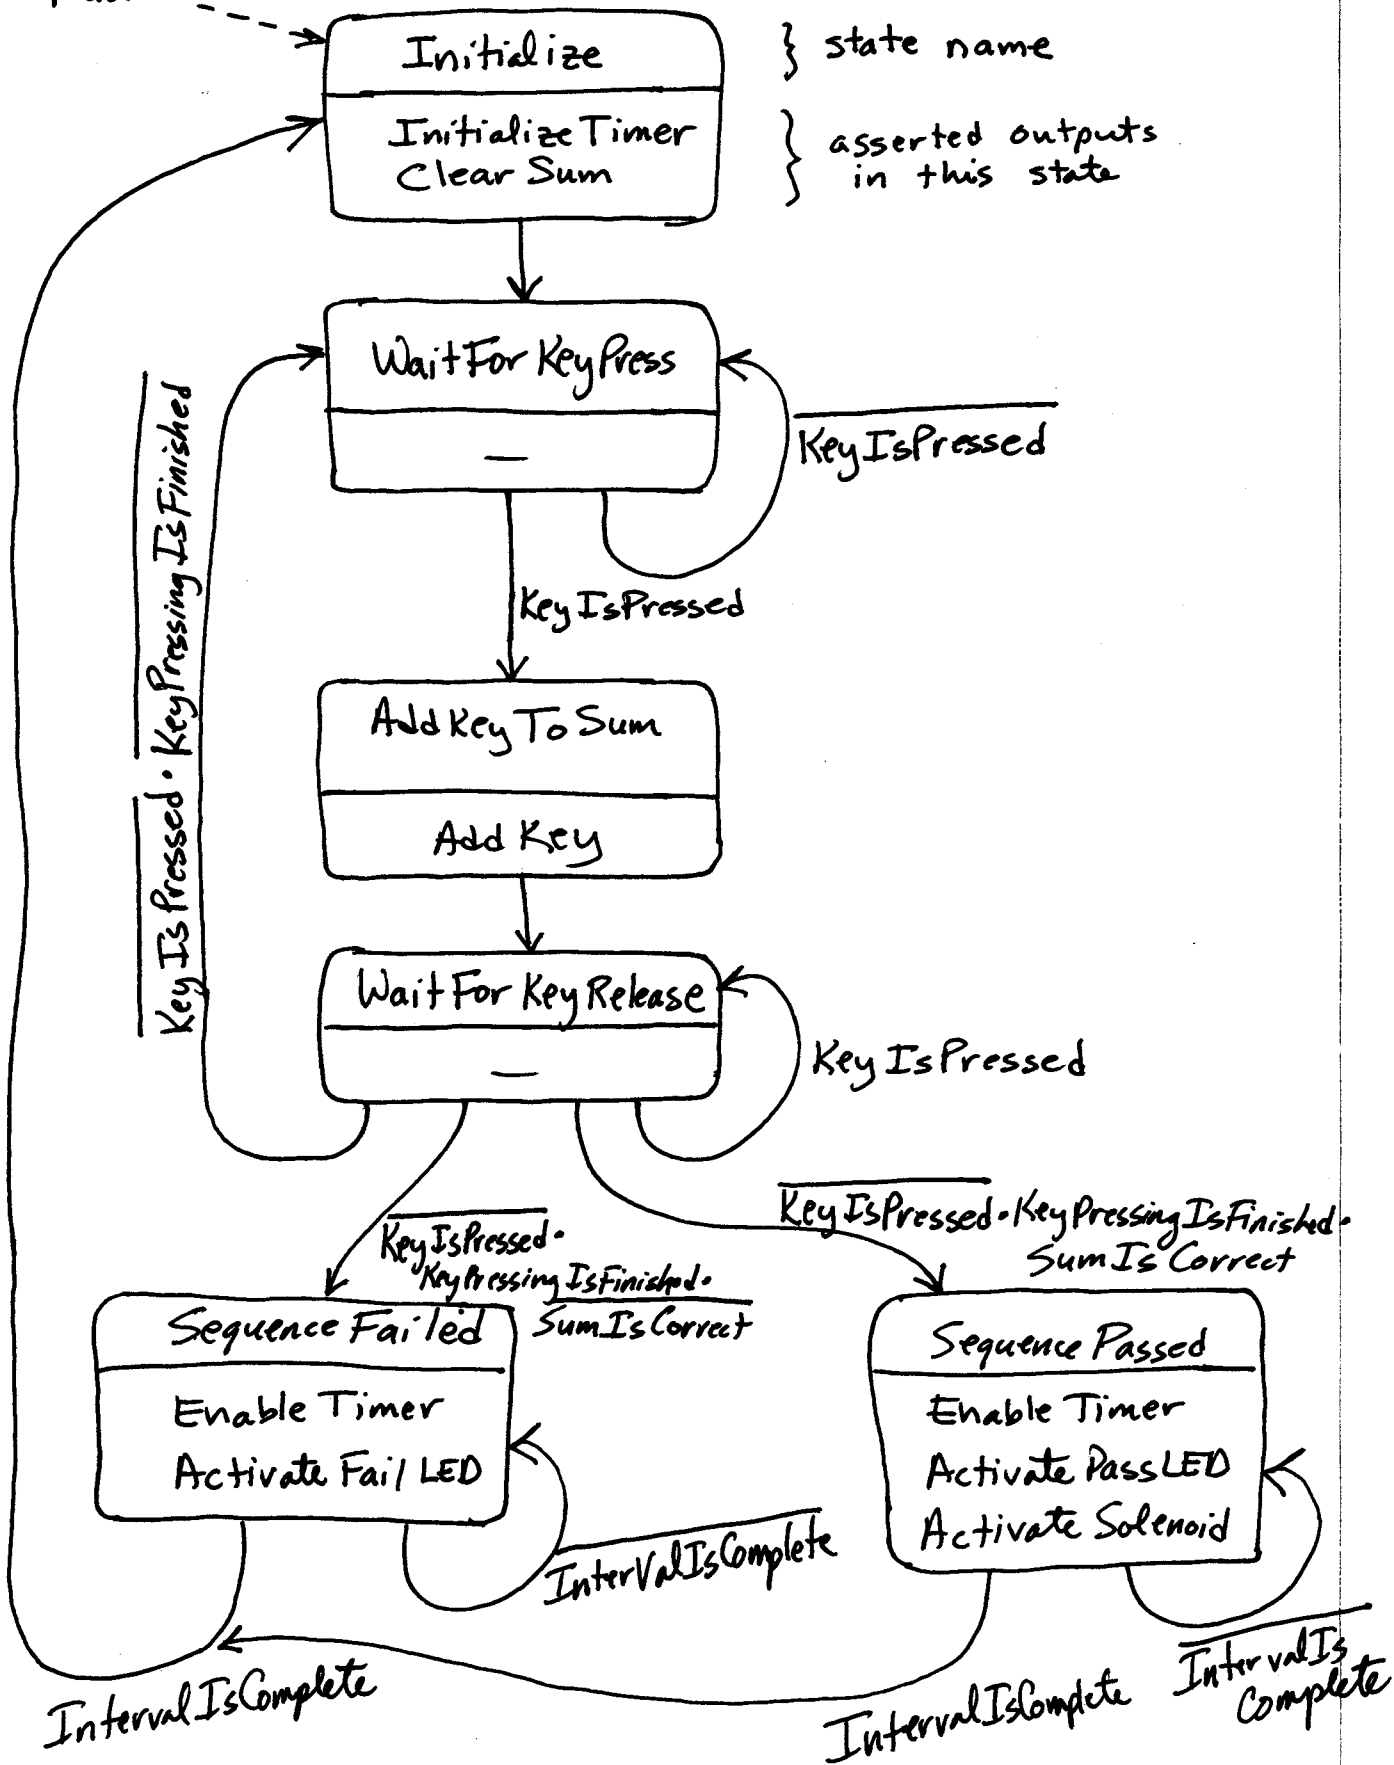 Initialize
} state name
Initialize Timer
Clear Sum
} asserted outputs
in this state
WaitForKeyPress
—
KeyIsPressed
KeyIsPressed
KeyIsPressed · KeyPressingIsFinished
AddKeyToSum
AddKey
WaitForKeyRelease
—
KeyIsPressed
KeyIsPressed·
KeyPressingIsFinished·
SumIsCorrect
KeyIsPressed·KeyPressingIsFinished·
SumIsCorrect
Sequence Failed
Enable Timer
Activate Fail LED
InterValIsComplete
IntervalIsComplete
Sequence Passed
Enable Timer
Activate PassLED
Activate Solenoid
IntervalIsComplete
IntervalIs
Complete